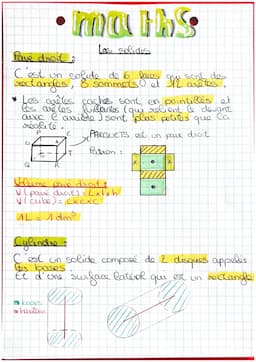 maths
Les solides
Pavé droit :
C'est un solide de 6 faces qui sont des
rectangles, 8 sommets et 12 arêtes.
Les arêtes cachés sont en pointillés et
les arêtes fuillantes (qui relient le devant
avec l'arrière) sont plus petites que la
réalité.
PARQUETS est un pavé droit
Patron :
Volume pavé droit :
V (pavé droit) = L x l x h
V (cube) = c x c x c
1L = 1 dm³
Cylindre :
C'est un solide composé de 2 disques appelés
les bases.
Et d'une surface latéral qui est un rectangle
bases
hauteur